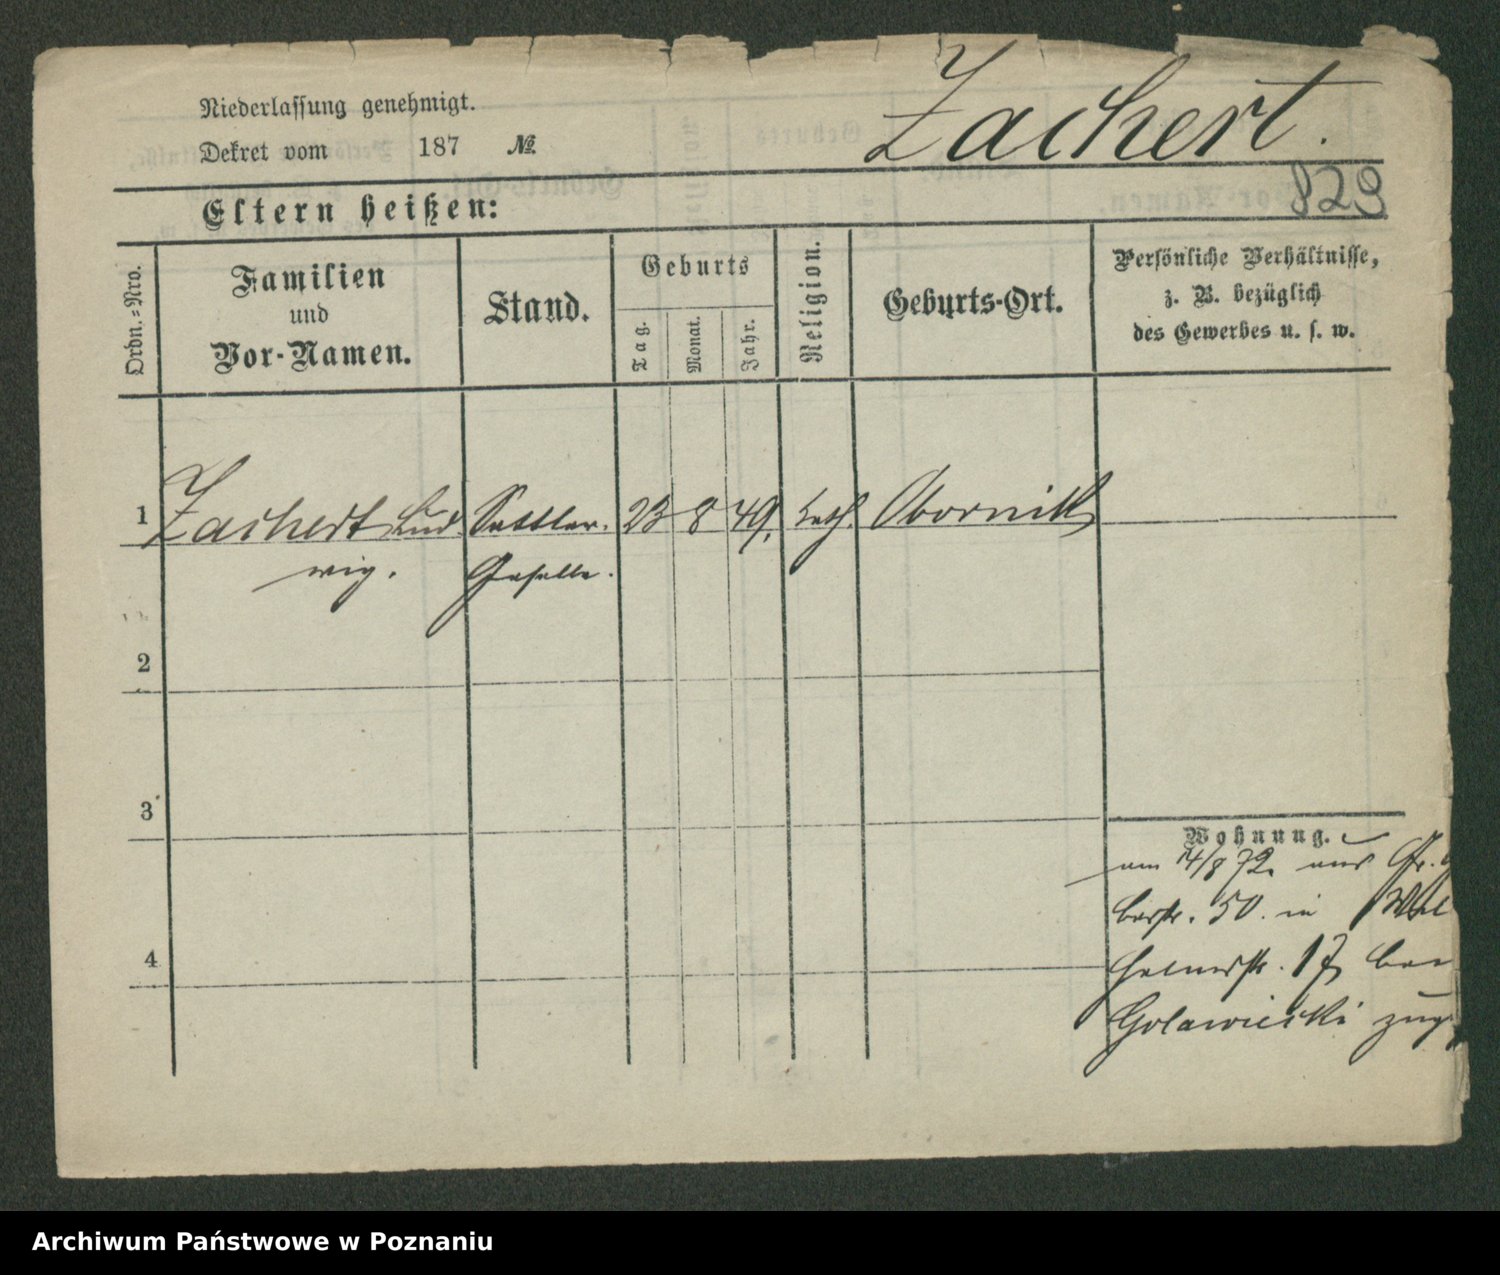 Niederlassung genehmigt.
Zachert.
Dekret vom 187 №
829
Eltern heißen:
Ordn.-Nro.
Familien
und
Vor-Namen.
Stand.
Geburts
Tag.
Monat.
Jahr.
Religion.
Geburts-Ort.
Persönliche Verhältnisse,
z. B. bezüglich
des Gewerbes u. s. w.
1 Zachert Lud Sattler. 23 8 49. kath. Obornik
wig. Geselle.
2
3
4
Wohnung.
am 14/8 72. aus Gr.
berstr. 50. in Wil
helmstr. 17 bei
Golawiecki zug
Archiwum Państwowe w Poznaniu